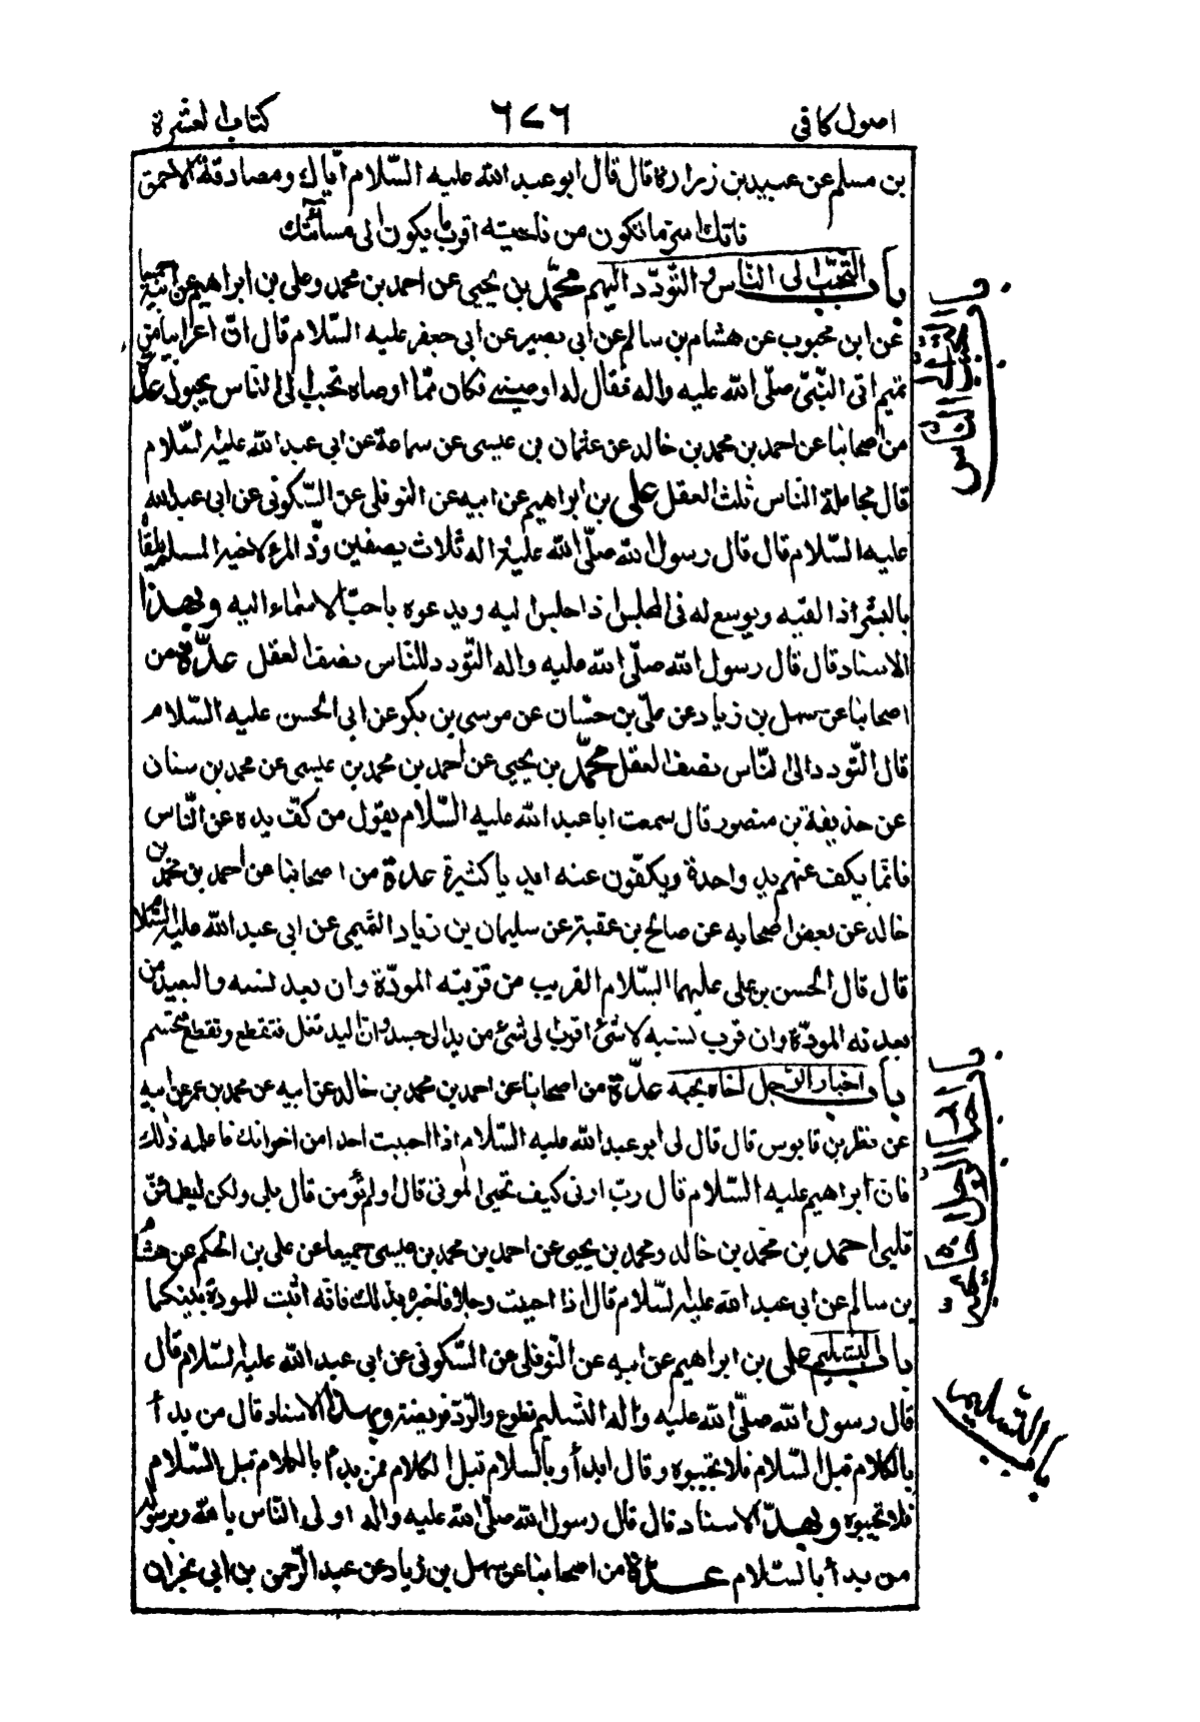 اصول كافى ٦٧٦ كتاب العشرة
بن مسلم عن عبيد بن زرارة قال قال ابو عبد الله عليه السّلام ايّاك ومصادقة الاحمق
فانك اسرّ ما تكون من ناحيته اقرب ما يكون الى مسائتك
باب التحبّب الى النّاس والتّودّد اليهم محمّد بن يحيى عن احمد بن محمد وعلى بن ابراهيم عن ابيه جميعا
عن ابن محبوب عن هشام بن سالم عن ابى بصير عن ابى جعفر عليه السّلام قال انّ اعرابيا من بنى
تميم اتى النّبىّ صلّى الله عليه واله فقال له اوصينى فكان ممّا اوصاه تحبب الى الناس يحبوك عدّة
من اصحابنا عن احمد بن محمد بن خالد عن عثمان بن عيسى عن سماعة عن ابى عبد الله عليه السّلام
قال مجاملة النّاس ثلث العقل على بن ابراهيم عن ابيه عن النوفلى عن السّكونى عن ابى عبد الله
عليه السّلام قال قال رسول الله صلّى الله عليه واله ثلاث يصفين ودّ المرء لاخيه المسلم يلقاه
بالبشر اذا لقيه ويوسع له فى المجلس اذا جلس اليه ويدعوه باحبّ الاسماء اليه وبهذا
الاسناد قال قال رسول الله صلّى الله عليه واله التّودد للنّاس نصف العقل عدّة من
اصحابنا عن سهل بن زياد عن علىّ بن حسّان عن موسى بن بكر عن ابى الحسن عليه السّلام
قال التّودد الى النّاس نصف العقل محمّد بن يحيى عن احمد بن محمد بن عيسى عن محمد بن سنان
عن حذيفة بن منصور قال سمعت ابا عبد الله عليه السّلام يقول من كفّ يده عن النّاس
فانّما يكف عنهم يدا واحدة ويكفّون عنه ايديا كثيرة عدة من اصحابنا عن احمد بن محمّد بن
خالد عن بعض اصحابه عن صالح بن عقبة عن سليمان بن زياد التّميمى عن ابى عبد الله عليه السّلام
قال قال الحسن بن على عليهما السّلام القريب من قرّبته المودّة وان بعد نسبه والبعيد من
بعدته المودّة وان قرب نسبه لا شىء اقرب الى شىء من يد الى جسد وانّ اليد تغل فتقطع وتقطع فتحسم
باب اخبار الرّجل اخاه بحبه عدّة من اصحابنا عن احمد بن محمد بن خالد عن ابيه عن محمد بن عمر عن ابيه
عن نظر بن قابوس قال قال لى ابو عبد الله عليه السّلام اذا احببت احدا من اخوانك فاعلمه ذلك
فان ابراهيم عليه السّلام قال ربّ ارنى كيف تحيى الموتى قال اولم تؤمن قال بلى ولكن ليطمئنّ
قلبى احمد بن محمّد بن خالد ومحمد بن يحيى عن احمد بن محمد بن عيسى جميعا عن على بن الحكم عن هشام
بن سالم عن ابى عبد الله عليه السّلام قال اذا احببت رجلا فاخبره بذلك فانّه اثبت للمودة بينكما
باب التسليم على بن ابراهيم عن ابيه عن النّوفلى عن السّكونى عن ابى عبد الله عليه السّلام قال
قال رسول الله صلّى الله عليه واله التّسليم تطوع والرّدّ فريضة وبهذا الاسناد قال من بدأ
بالكلام قبل السّلام فلا تجيبوه وقال ابدأوا بالسّلام قبل الكلام فمن بدء بالكلام قبل السّلام
فلا تجيبوه وبهذا الاسناد قال قال رسول الله صلّى الله عليه واله اولى النّاس بالله وبرسوله
من بدأ بالسّلام عدّة من اصحابنا عن سهل بن زياد عن عبد الرّحمن بن ابى نجران
باب التحبّب الى النّاس
باب اخبار الرّجل اخاه بحبّه
باب التسليم